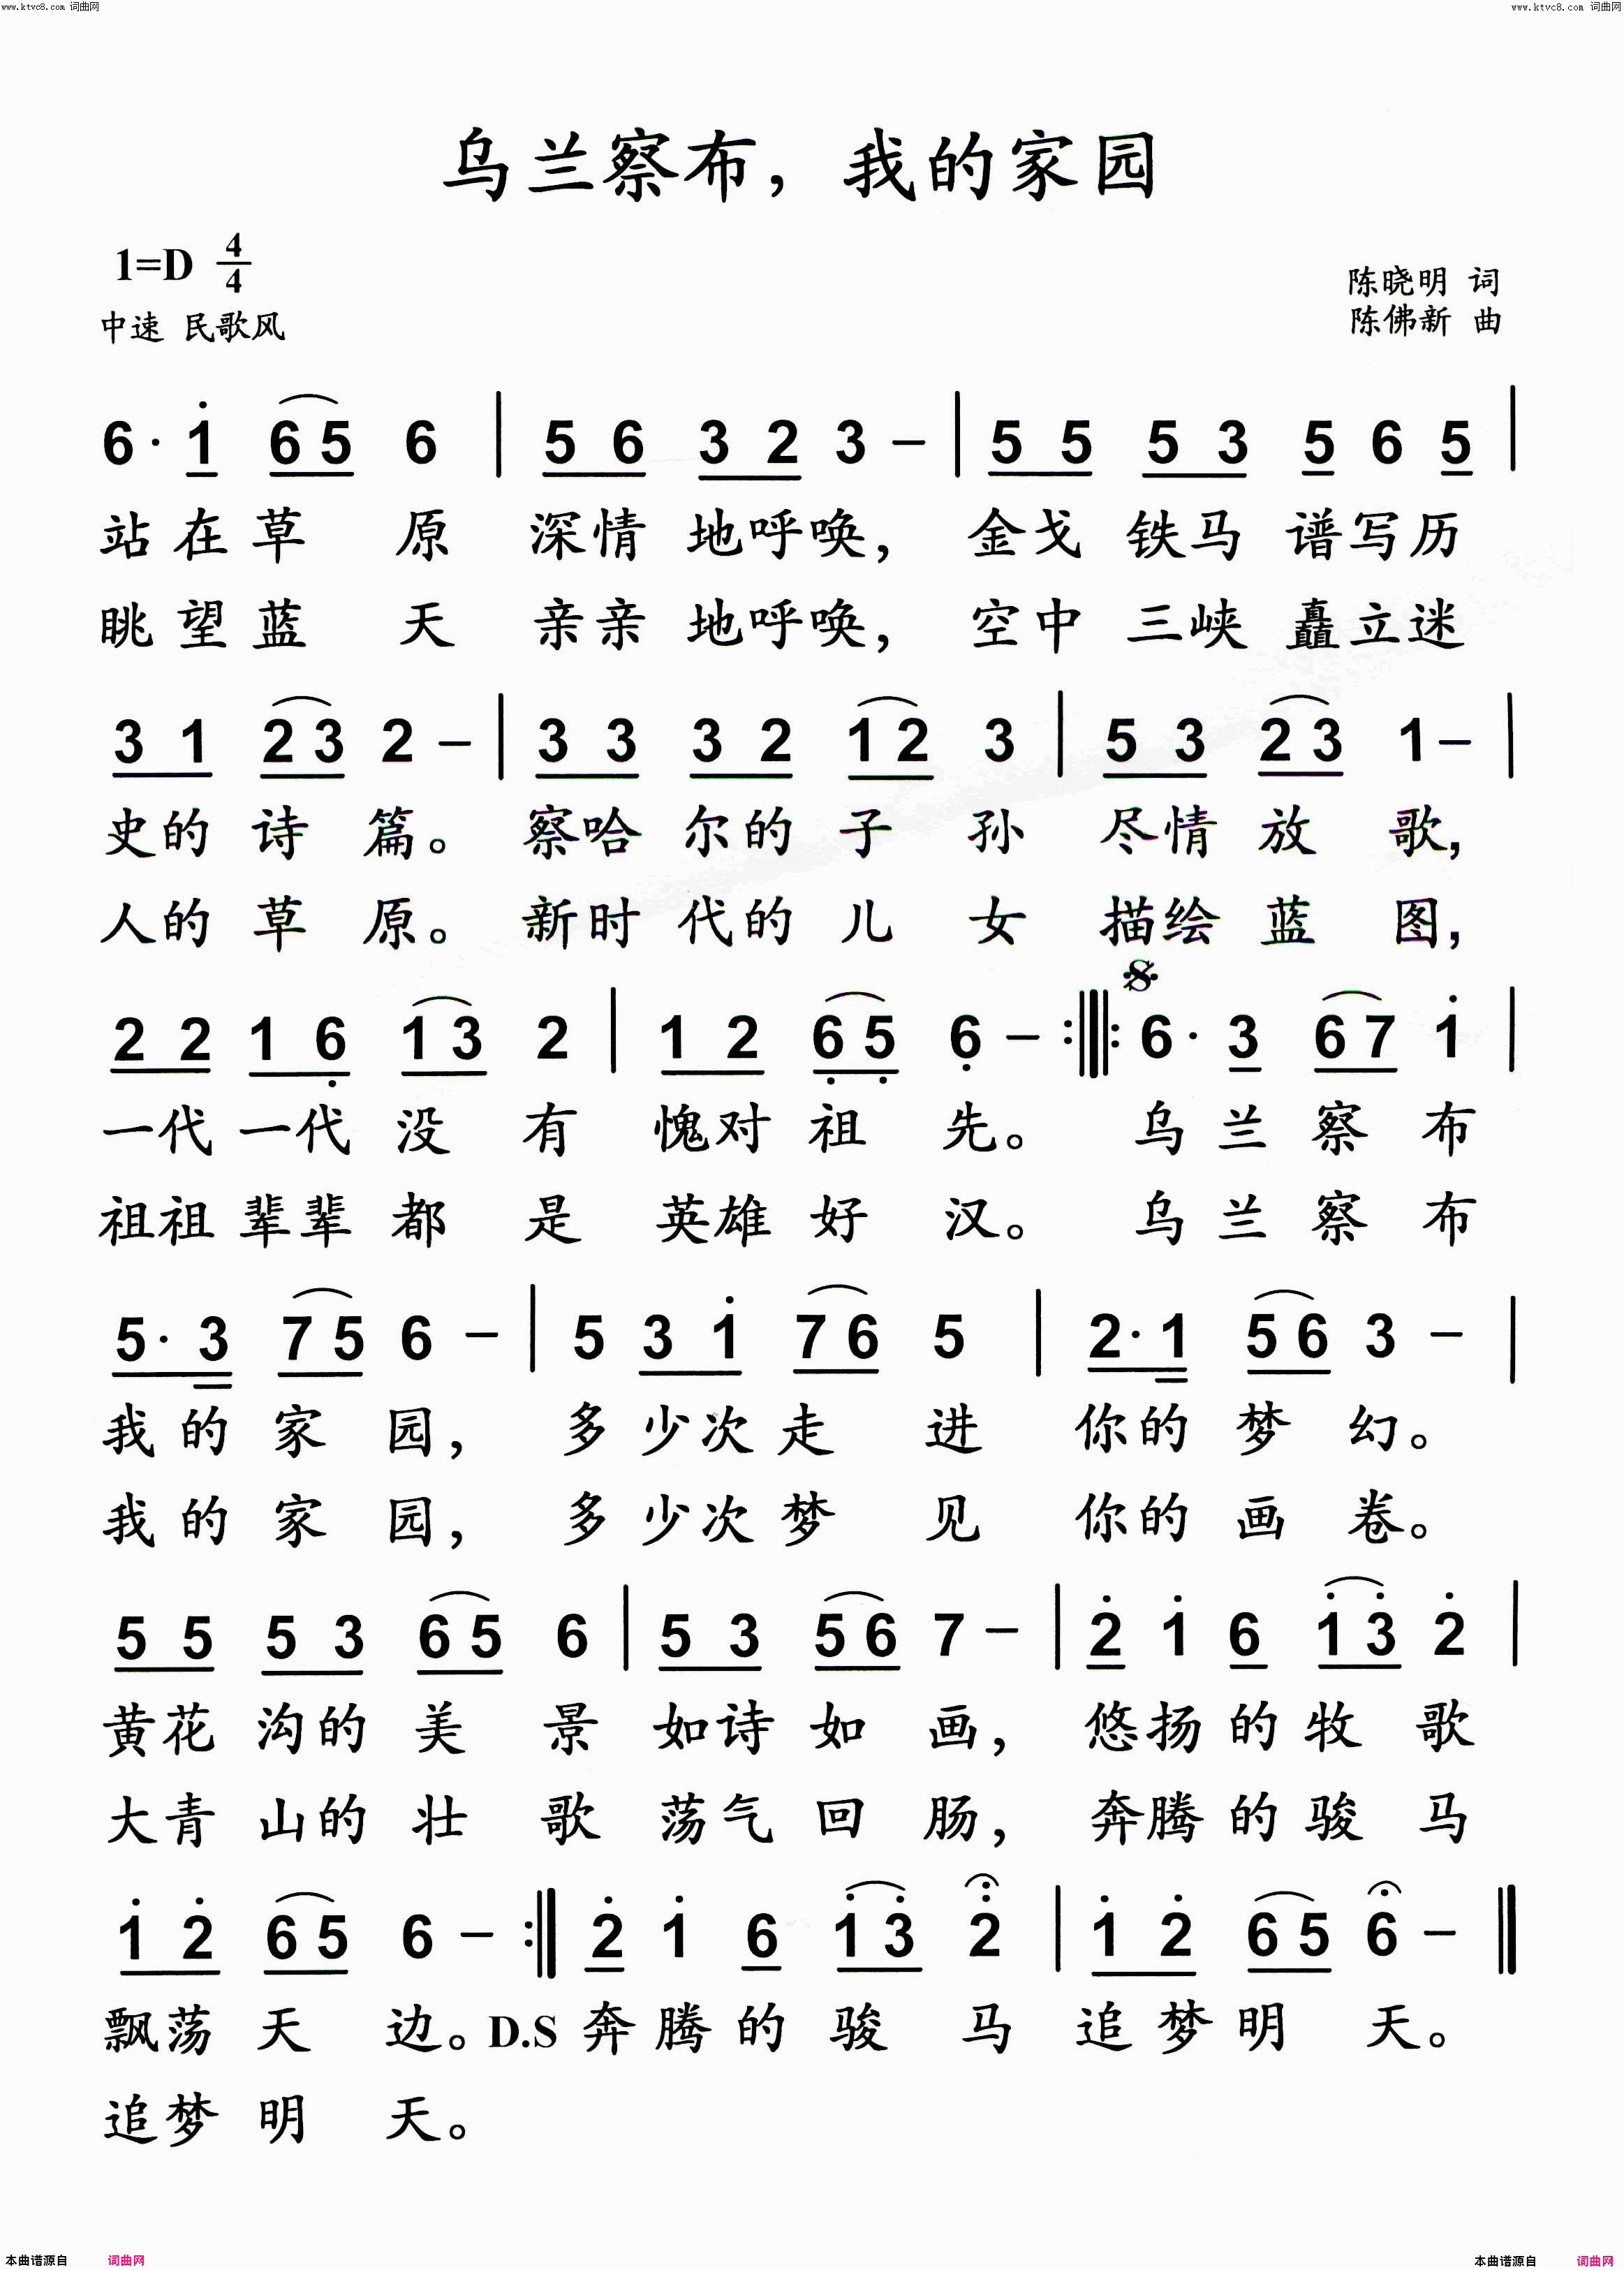 www.ktvc8.com 词曲网 www.ktvc8.com 词曲网
乌兰察布，我的家园
1=D 4/4
陈晓明 词
中速 民歌风
陈佛新 曲
6· i 6 5 6 | 5 6 3 2 3 – | 5 5 5 3 5 6 5 |
站在草 原 深情 地呼唤， 金戈 铁马 谱写历
眺望蓝 天 亲亲 地呼唤， 空中 三峡 矗立迷
3 1 2 3 2 – | 3 3 3 2 1 2 3 | 5 3 2 3 1 – |
史的 诗 篇。 察哈 尔的 子 孙 尽情 放 歌，
人的 草 原。 新时 代的 儿 女 描绘 蓝 图，
2 2 1 6̣ 1 3 2 | 1 2 6̣ 5̣ 6̣ – :‖: 𝄋 6· 3 6 7 i |
一代 一代 没 有 愧对 祖 先。 乌 兰 察 布
祖祖 辈辈 都 是 英雄 好 汉。 乌 兰 察 布
5· 3 7 5 6 – | 5 3 i 7 6 5 | 2· 1 5 6 3 – |
我 的 家 园， 多 少次 走 进 你的 梦 幻。
我 的 家 园， 多 少次 梦 见 你的 画 卷。
5 5 5 3 6 5 6 | 5 3 5 6 7 – | 2̇ i 6 i 3̇ 2̇ |
黄花 沟的 美 景 如诗 如 画， 悠扬的 牧 歌
大青 山的 壮 歌 荡气 回 肠， 奔腾的 骏 马
i 2̇ 6 5 6 – :‖ 2̇ i 6 i 3̇ 2̇ | i 2̇ 6 5 6 – ‖
飘荡 天 边。 D.S 奔腾的 骏 马 追梦明 天。
追梦 明 天。
本曲谱源自 词曲网 本曲谱源自 词曲网